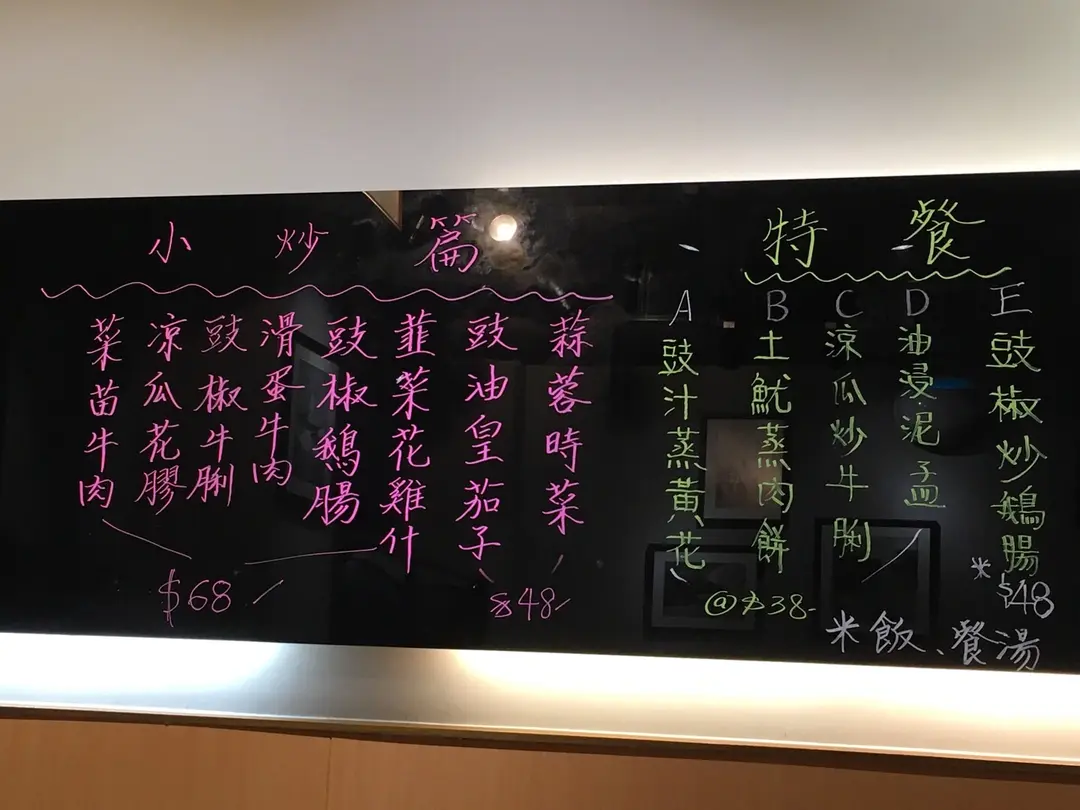 小炒篇
菜苗牛肉
凉瓜花膠
豉椒牛脷
滑蛋牛肉
豉椒鵝腸
韮菜花雞什
豉油皇茄子
蒜蓉時菜
$68
$48-
特餐
A 豉汁蒸黃花
B 土魷蒸肉餅
C 涼瓜炒牛脷
D 油浸泥孟
E 豉椒炒鵝腸
@$38-
*$48
米飯、餐湯